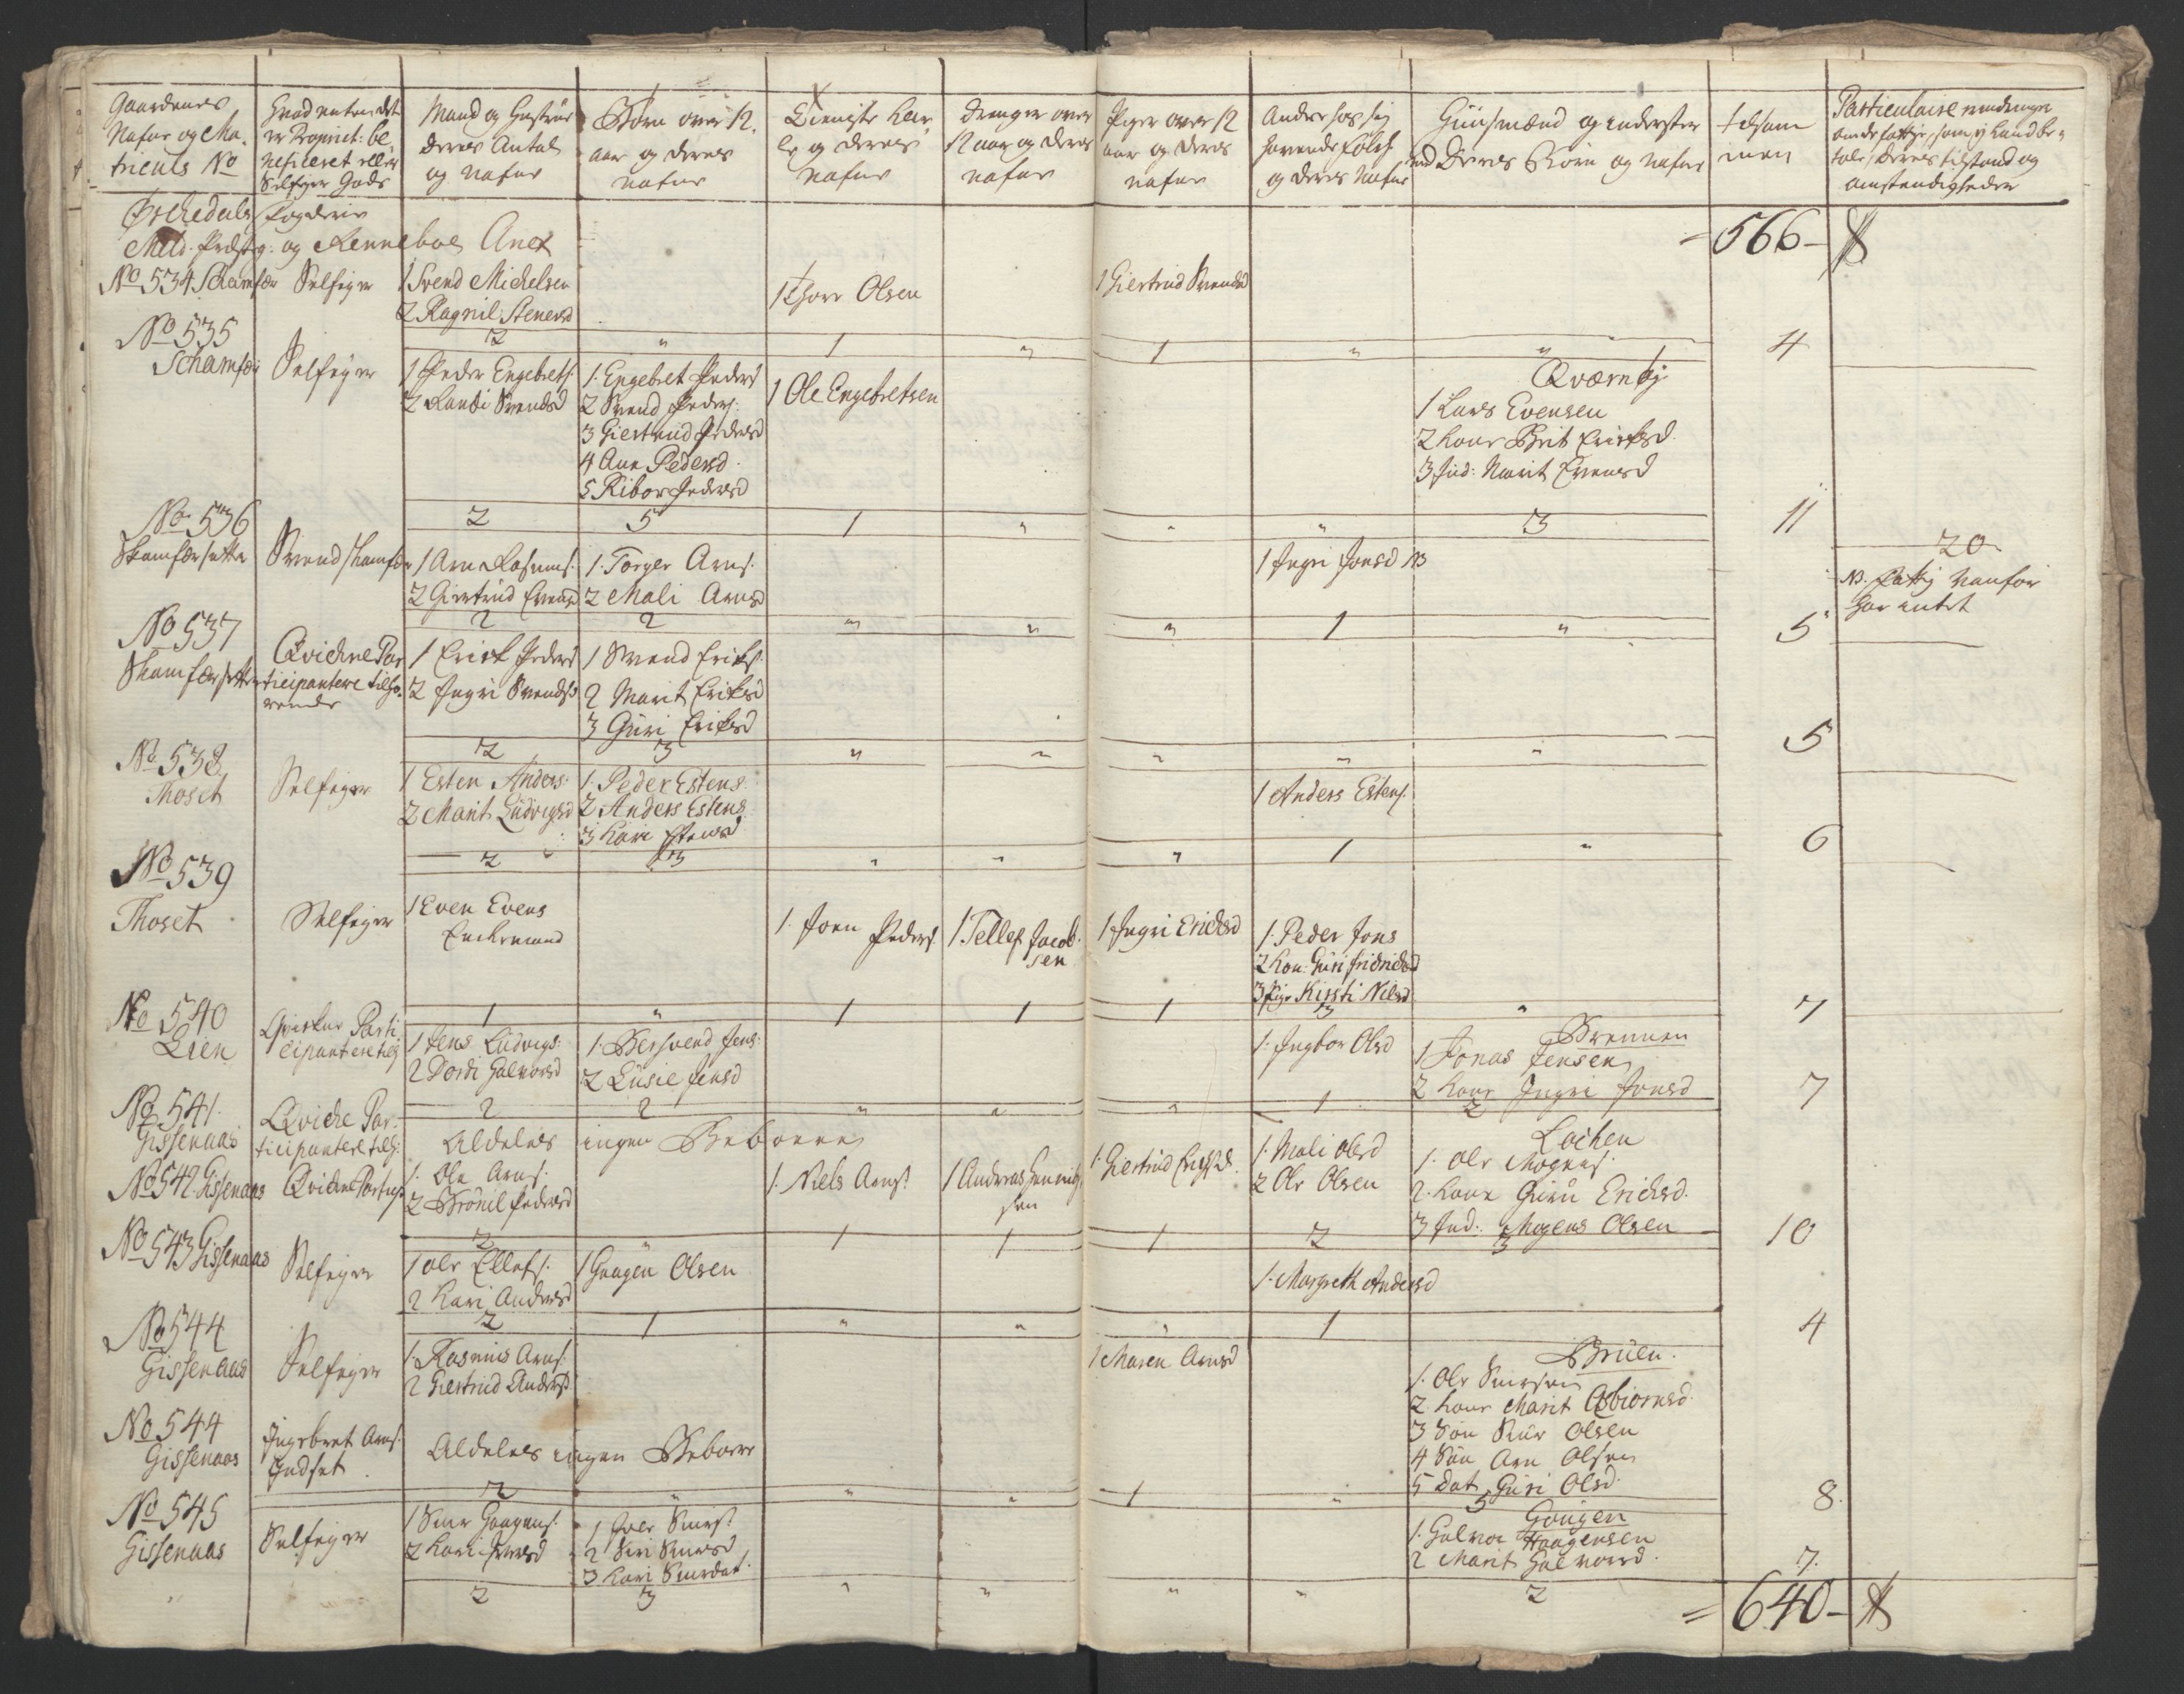 Gaardenes
Nafne og Ma-
triculs No
Hvad enten det
er Propriet: be-
neficeret eller
Selfeyer Gods
Mand og Hustrue
deres Antal
og nafne
Børn over 12
aar og deres
nafne
Tieniste Kar-
le og deres
nafne
Drenge over
12 aar og deres
nafne
Piger over 12
aar og deres
nafne
Andre hos sig
havende folch
og deres Nafne
Huusmænd og inderster
med Deres Børn og nafne
tilsam
men
Particulaire
omstendigheder
Ørchedals fogderie
Meld. Præstg: og Renneboe Anex
=566-
No 534 Schamfær Selfeyer 1 Svend Michelsen
2 Ragnil Stenersd
1 Thore Olsen
1 Giertrud Svendsd
2 " 1 " 1 " " 4
No 535
Schamfær Selfeyer
1 Peder Engebrets:
2 Randi Svendsd
1. Engebret Peders
2 Svend Peders:
3 Giertrud Pedersd
4 Ane Pedersd
5 Ribor Pedersd
1 Ole Engebretsen
Qværnhy
1 Lars Evensen
2 Kone Brit Erichsd
3 Ind: Marit Evensd
2 5 1 " " " 3 11
No 536
Skamfærsætter Svend Skamfær
1 Arn Rasmus:
2 Giertrud Evensd
1. Torger Arns:
2 Mali Arnsd
1 Ingri Jonsd NB
20
NB. fattig Vanfør
har intet
2 2 " " " 1 " 5
No 537
Skamfærsætter
Qvichne Par
ticipantere tilhø-
rende
1 Erick Peders
2 Ingri Svendsd
1 Svend Eriks:
2 Marit Eriksd
3 Guri Eriksd
2 3 " " " " " 5
No 538
Thoset Selfeyer
1 Esten Anders:
2 Marit Ludvigsd
1. Peder Estens
2 Anders Estens
3 Kari Estensd
1 Anders Estens:
2 3 " " " 1 " 6
No 539
Thoset Selfeyer
1 Even Evens
Enckemand
1. Joen Peders
1. Tellef Jacob-
sen
1 Ingri Ericksd
1. Peder Jons
2 Kon: Guri Fridrichsd
3 Pige Kirsti Nilsd
1 " 1 1 1 3 " 7
No 540
Lien
Qvickne Parti
cipantere tilh:
1 Jens Ludvigs:
2 Dordi Halvorsd
1. Bersvend Jens:
2 Lusie Jensd
1. Ingbor Olsd
Brennen
1 Jonas Jensen
2 Kone Ingri Jonsd
2 2 " " " 1 2 7
No 541.
Gissenaas
Qvichne Par-
ticipantere tilh:
Aldeles ingen Beboere
No 542 Gissenaas Qvichne Particip
1. Ole Arns:
2 Brønil Pedersd
1. Niels Arns:
1 Andreas Henrich
sen
1. Giertrud
1. Mali Olsd
2 Ole Olsen
Lochen
1. Ole Mogens:
2. Kone Guru Erichsd.
3 Ind: Mogens Olsen
2 " 1 1 1 2 3 10
No 543 Gissenaas Selfeyer
1 Ole Ellefs:
2 Kari Andersd
1 Haagen Olsen
1. Margreth Andersd
2 1 " " " 1 4
No 544
Gissenaas Selfeyer
1. Rasmus Arns:
2 Giertrud Andersd
1 Maren Arnsd
Bruen.
1. Ole Sivrsen
2 Kone Marit Asbiørnsd.
3 Søn Sivr Olsen
4 Søn Arn Olsen
5 Dat Guri Olsd.
No 544
Gissenaas
Ingebret Arns:
Aldeles ingen Beboere
2 " " " 1 " 5 8.
No 545
Gissenaas Selfeyer
1 Sivr Haagens:
2 Kari Iversd
1 Sivrs:
2 Siri Sivrsd
3 Kari Sivrdat:
Gougen
1. Halvor Haagensen
2 Marit Halvorsd.
7.
2 3 " " " " 2
=640-